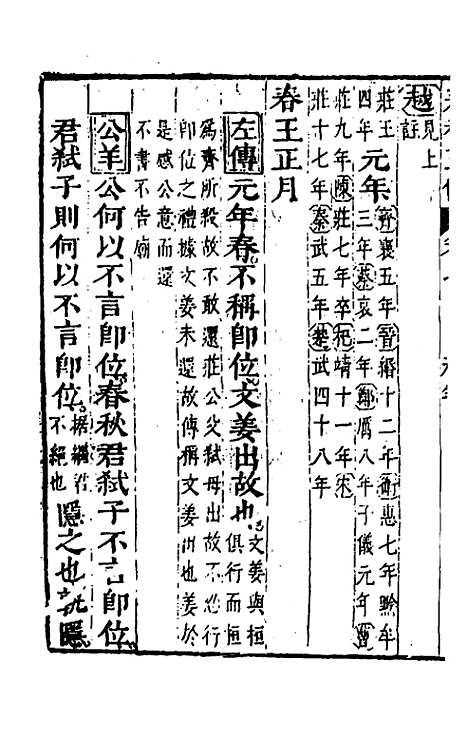 越見上
註
莊王
四年
元年
齊襄五年晉緡十二年衛惠七年黔牟
三年蔡哀二年鄭厲八年子儀元年曹
莊九年陳莊七年卒杞靖十一年宋
莊十七年秦武五年楚武四十八年
春王正月
左傳元年春不稱卽位文姜出故也文姜與桓
俱行而桓
爲齊所殺故不敢還莊公父弑母出故不忍行
卽位之禮據文姜未還故傳稱文姜出也姜於
是感公意而還
不書不告廟
公羊公何以不言卽位春秋君弑子不言卽位
君弑子則何以不言卽位據繼君
不絕也
隱之也孰隱